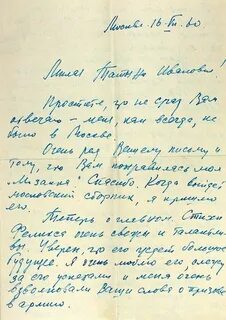 Москва 16. VI. 60
Милая Татьяна Ивановна!
Простите, что не сразу Вам
отвечаю – меня, как всегда, не
было в Москве.
Очень рад Вашему письму и
тому, что Вам понравилась моя
Спасибо. Когда выйдет
московский сборник, я пришлю
его.
Теперь о главном. Стихи
Феликса очень свежи и талантли-
вы. Уверен, что его ждёт большое
будущее. Я очень люблю его, слежу
за его успехами и меня очень
взволновали Ваши слова о призыве
в армию.